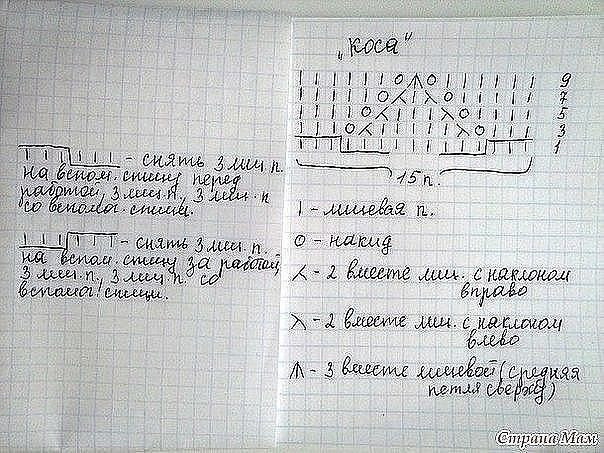 - снять 3 лиц п.
на вспом. спицу перед
работой, 3 лиц п., 3 лиц. п
со вспомог. спицы.
- снять 3 лиц п.
на вспом. спицу за работой,
3 лиц. п., 3 лиц п. со
вспомог. спицы.
„коса"
9
7
5
3
1
15 п.
| - лицевая п.
O - накид
⋌ - 2 вместе лиц. с наклоном
вправо
⋋ - 2 вместе лиц. с наклоном
влево
- 3 вместе лицевой (средняя
петля сверху)
Страна Мам